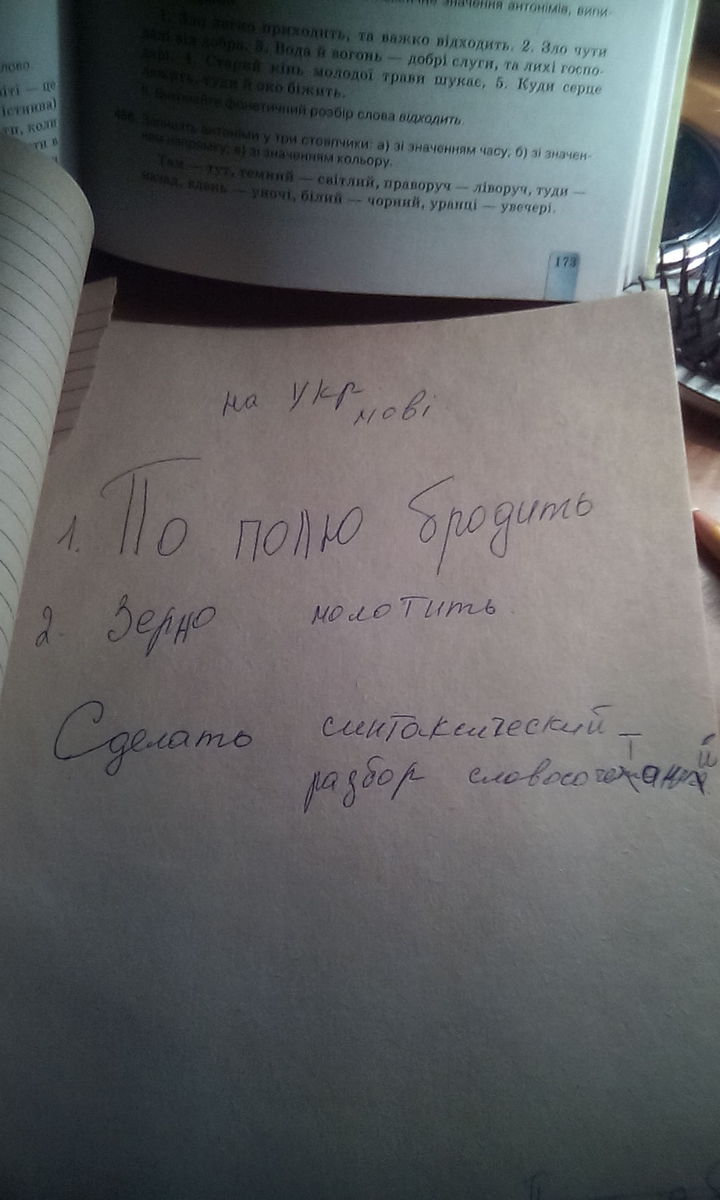 значення антонімів, випи-
1. Зло легко приходить, та важко відходить. 2. Зло чути
далі від добра. 3. Вода й вогонь — добрі слуги, та лихі госпо-
дарі. 4. Старий кінь молодої трави шукає. 5. Куди серце
лежить, туди й око біжить.
фонетичний розбір слова відходить.
486. Запишіть антоніми у три стовпчики: а) зі значенням часу; б) зі значен-
ням напрямку; в) зі значенням кольору.
Там — тут, темний — світлий, праворуч — ліворуч, туди —
назад, вдень — уночі, білий — чорний, уранці — увечері.
173
на укр
мові
1. По полю бродить
2. Зерно молотить
Сделать синтаксический
разбор словосочетаний